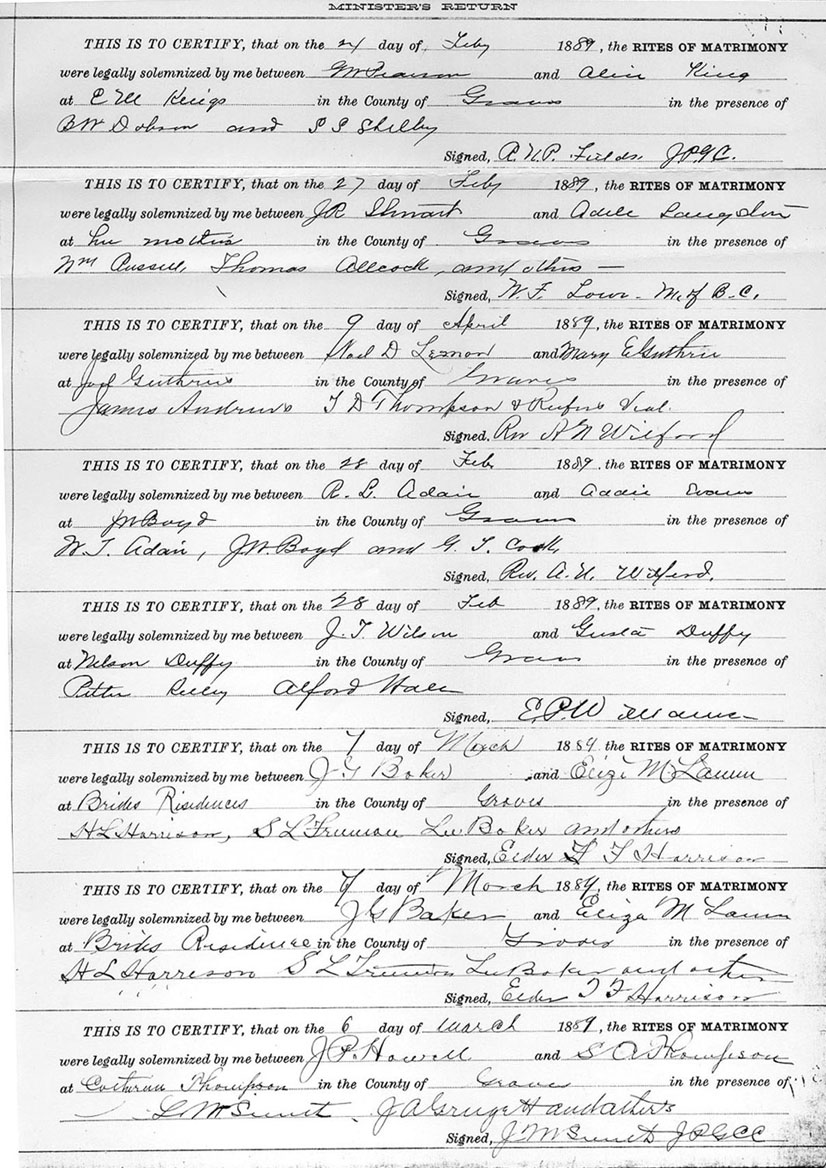 MINISTER'S RETURN
THIS IS TO CERTIFY, that on the 21 day of Feby 1889, the RITES OF MATRIMONY
were legally solemnized by me between GW Pearson and Alice King
at C M Kings in the County of Graves in the presence of
BW Dobson and S S Shelby
Signed, R. N. P. Fields. JPGC.
THIS IS TO CERTIFY, that on the 27 day of Feby 1889, the RITES OF MATRIMONY
were legally solemnized by me between JR and Adell Langston
at her mothers in the County of Graves in the presence of
Wm Russell, Thomas Allcock, and others —
Signed, W. F. Lowe. M. of B. C.
THIS IS TO CERTIFY, that on the 9 day of April 1889, the RITES OF MATRIMONY
were legally solemnized by me between D Lemon and Mary E Guthrie
at Joel Guthries in the County of Graves in the presence of
James Andrews T D Thompson & Rufus Veal.
Signed, Rev A N Wilford
THIS IS TO CERTIFY, that on the 28 day of Feb 1889, the RITES OF MATRIMONY
were legally solemnized by me between R. L. Adair and Addie Evans
at JW Boyd in the County of Graves in the presence of
W. T. Adair, J.W. Boyd and G. T. Cook,
Signed, Rev. A. N. Wilford.
THIS IS TO CERTIFY, that on the 28 day of Feb 1889, the RITES OF MATRIMONY
were legally solemnized by me between J. T. Wilson and Gusta Duffy
at Nelson Duffy in the County of Graves in the presence of
Petter Kelley Alford Hale
Signed, E. P. Williams
THIS IS TO CERTIFY, that on the 7 day of March 1889, the RITES OF MATRIMONY
were legally solemnized by me between J G Baker and Elize M Lamm
at Brides Risidences in the County of Graves in the presence of
H L Harrison, S L Freeman Lee Baker and others
Signed, Elder T F Harrison
THIS IS TO CERTIFY, that on the 7 day of March 1889, the RITES OF MATRIMONY
were legally solemnized by me between J G Baker and Eliza M Lamm
at Brides Residence in the County of Graves in the presence of
H L Harrison S L Freeman Lee Baker and others
Signed, Elder T F Harrison
THIS IS TO CERTIFY, that on the 6 day of March 1889, the RITES OF MATRIMONY
were legally solemnized by me between J P. Howell and S A Thompson
at Thompson in the County of Graves in the presence of
L. M J A and others
Signed, J M JPGCC